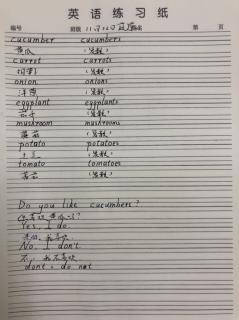 英语练习纸
编号 班级 11月12日 姓名 第 页
cucumber cucumbers
黄瓜 (复数)
carrot carrots
胡萝卜 (复数)
onion onions
洋葱 (复数)
eggplant eggplants
茄子 (复数)
mushroom mushrooms
蘑菇 (复数)
potato potatoes
土豆 (复数)
tomato tomatoes
(复数)
Do you like cucumbers?
你喜欢黄瓜吗?
Yes, I do.
我喜欢
No, I don't.
不, 我不喜欢
don't = do not